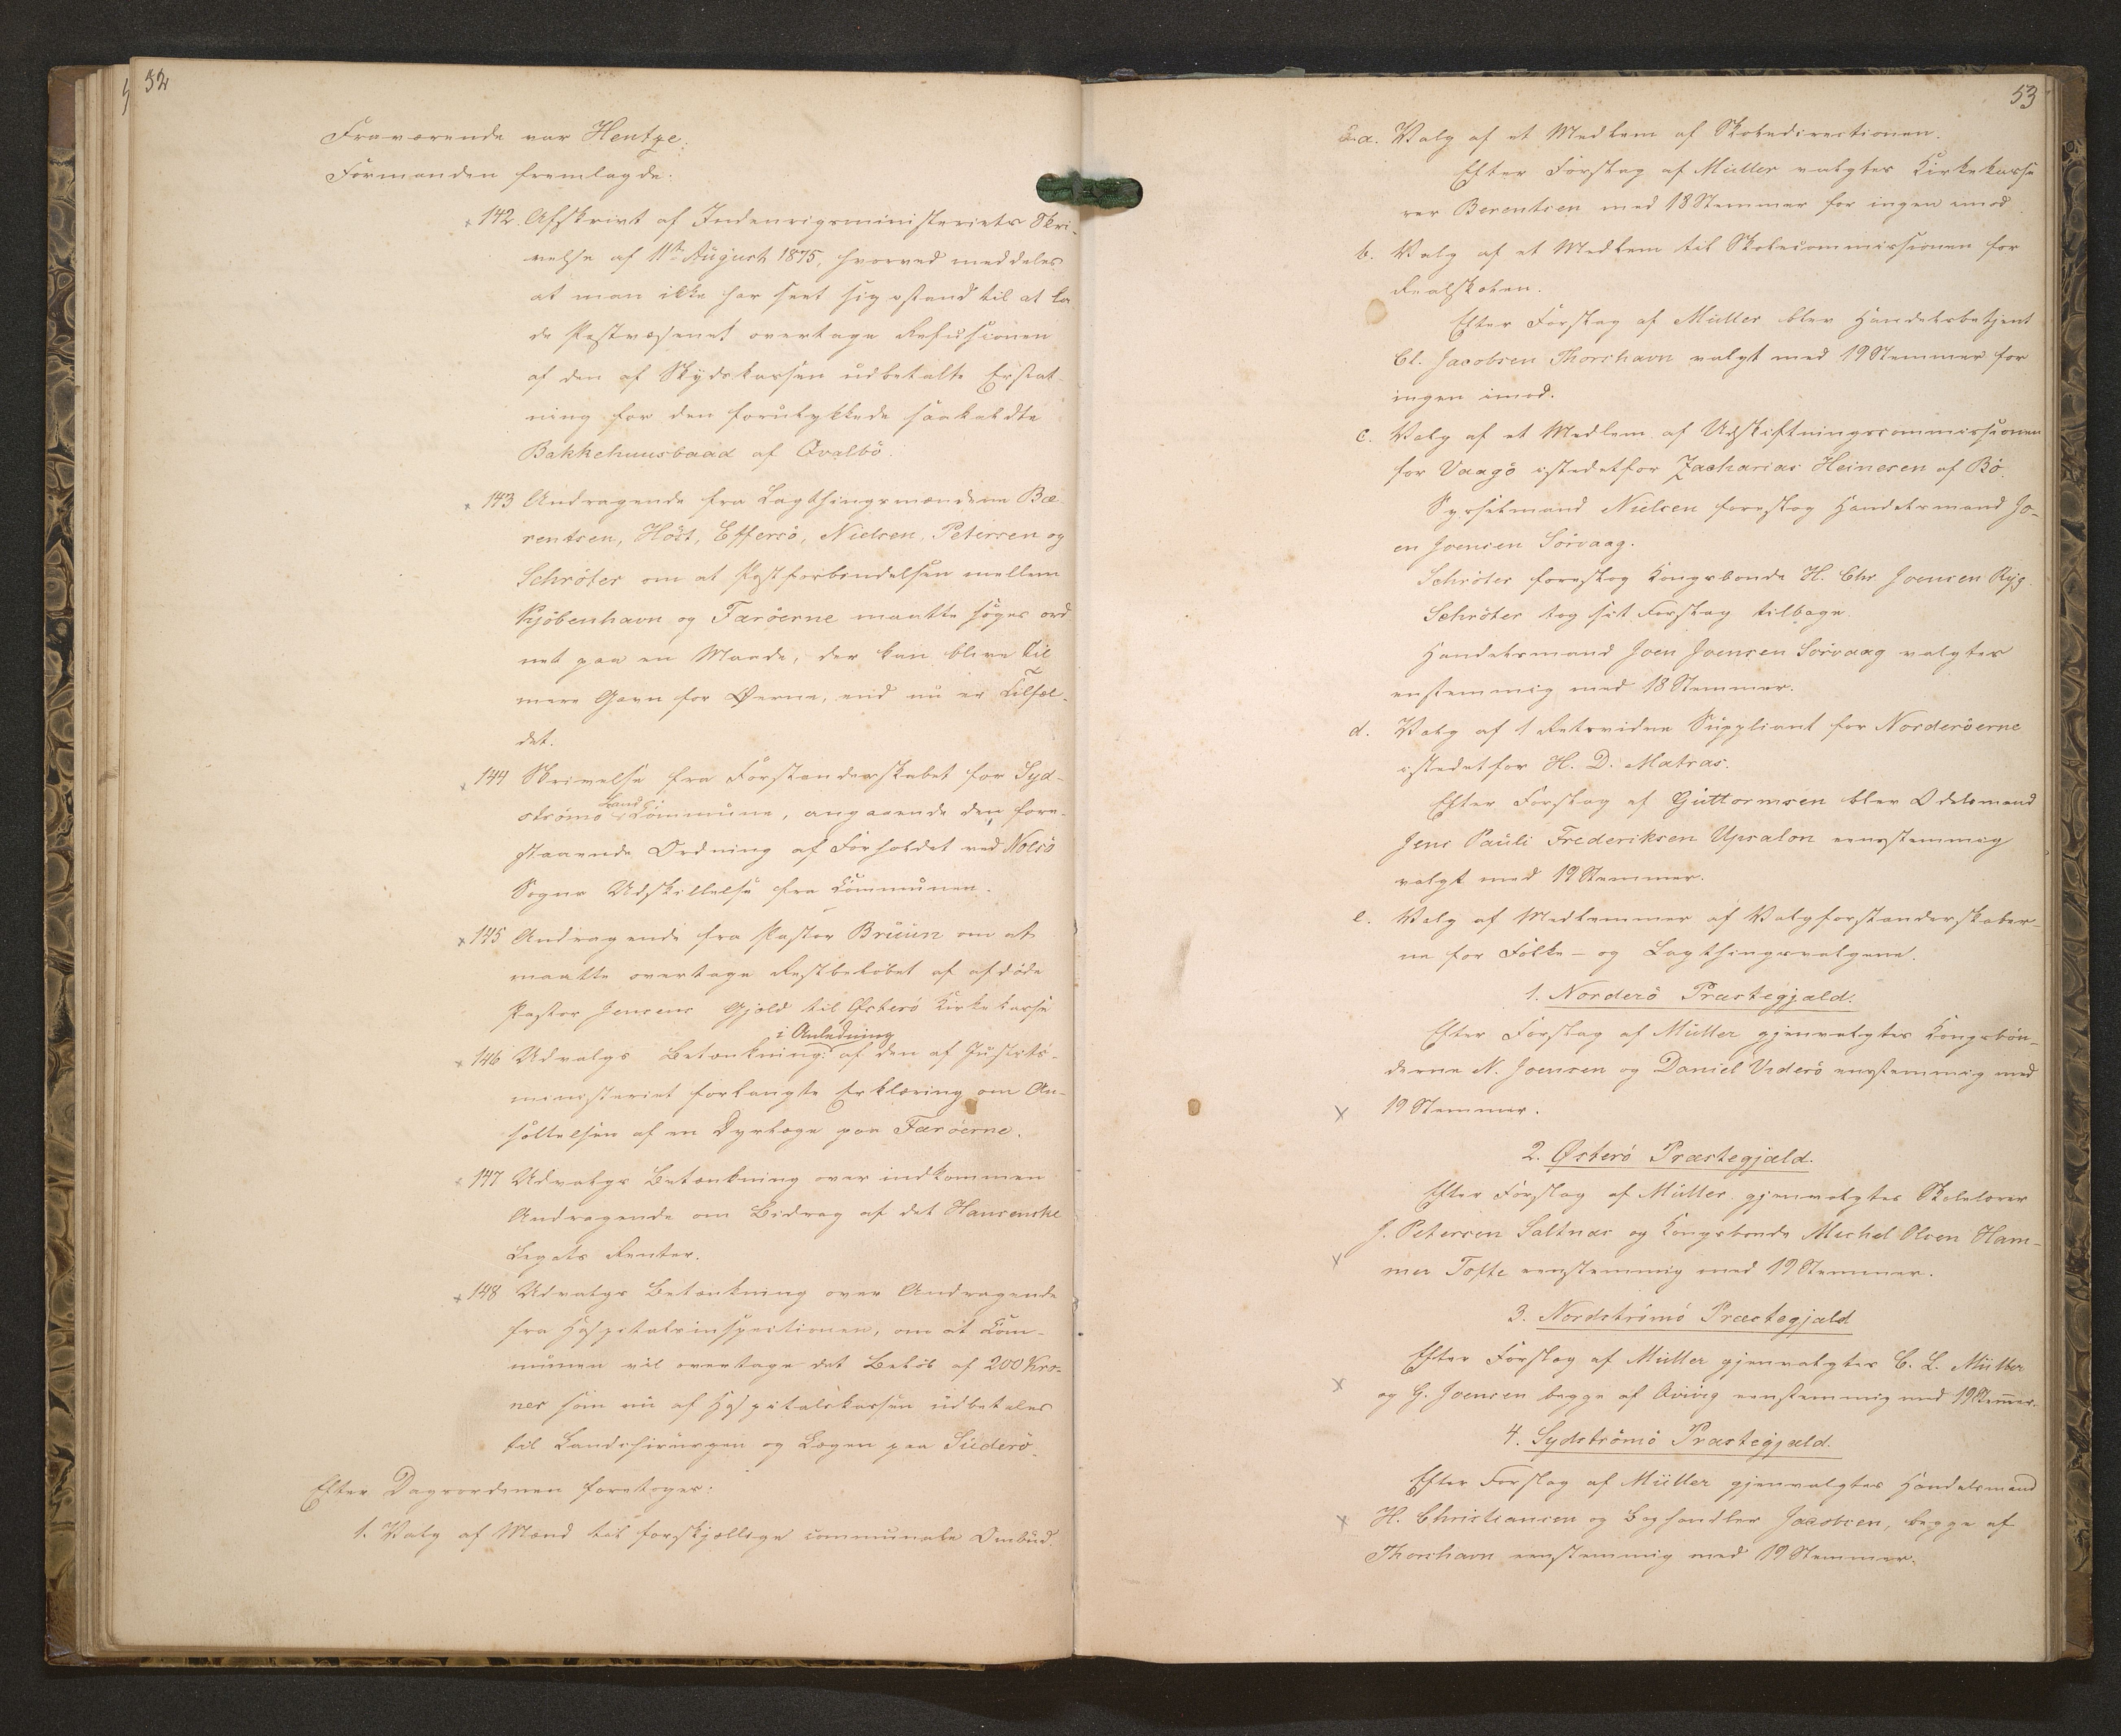 52
Fraværende var Hentze.
Formanden fremlagde:
142. Afskrivt af Indenrigsministeriets Skri-
velse af 11te August 1875, hvorved meddeles
at man ikke har seet sig istand til at la-
de Postvæsenet overtage Refusionen
af den af Skydskassen udbetalte Erstat-
ning for den forulykkede saakaldte
Bakkehuusbaad af Qvalbö.
143 Andragende fra Lagthingsmændene Bæ-
rentsen, Höst, Effersö, Nielsen, Petersen og
Schröter om at Postforbindelsen mellem
Kjöbenhavn og Færöerne maatte söges ord
net paa en Maade, der kan blive til
mere Gavn for Øerne, end nu er Tilfæl-
det.
144 Skrivelse fra Forstanderskabet for Syd-
strömö Lands Commune, angaaende den fore-
staaende Ordning af Forholdet ved Nolsö
Sogns Udskillelse fra Communen.
145 Andragende fra Pastor Bruun om at
maatte overtage Restbelöbet af afdöde
Pastor Jensens Gjæld til Østerö Kirkekasse
146 Udvalgs Betænkning i Anledning af den af Justits-
ministeriet forlangte Erklæring om An-
sættelsen af en Dyrlæge paa Færöerne.
147 Udvalgs Betænkning over indkommen
Andragende om Bidrag af det Hansenske
Legats Renter.
148 Udvalgs Betænkning over Andragende
fra Hospitalsinspectionen, om at Com-
munen vil overtage det Belöb af 200 Kro-
ner som nu af Hospitalskassen udbetales
til Landchirurgen og Lægen paa Suderö.
Efter Dagsordenen foretoges:
1. Valg af Mænd til forskjellige communale Ombud.
53
a. Valg af et Medlem af Skoledirectionen.
Efter Forslag af Müller valgtes Kirkekasse
rer Berentsen med 18 Stemmer for ingen imod.
b. Valg af et Medlem til Skolecommissionen for
Realskolen.
Efter Forslag af Müller blev Handelsbetjent
Cl. Jacobsen Thorshavn valgt med 19 Stemmer for
ingen imod.
c. Valg af et Medlem af Udskiftningscommissionen
for Vaagö istedetfor Zacharias Heinesen af Bö.
Sysselmand Nielsen foreslog Handelsmand Jo-
en Joensen Sörvaag.
Schröter foreslog Kongsbonde H. Chr Joensen Ryg.
Schröter tog sit Forslag tilbage.
Handelsmand Joen Joensen Sörvaag valgtes
enstemmig med 18 Stemmer.
d. Valg af 1 Retsvidne Suppliant for Norderöerne
istedetfor H. D. Matras.
Efter Forslag af Guttormsen blev Odelsmand
Jens Pauli Frederiksen Upsalon eenstemmig
valgt med 19 Stemmer.
e. Valg af Medlemmer af Valgforstanderskaber-
ne for Folke- og Lagthingsvalgene.
1. Norderö Præstegjæld.
Efter Forslag af Müller gjenvalgtes Kongsbön-
derne N. Joensen og Daniel Viderö eenstemmig med
19 Stemmer.
2. Østerö Præstegjæld.
Efter Forslag af Müller gjenvalgtes Skolelærer
J. Petersen Saltnæs og Kongsbonde Michel Olsen Ham-
mer Tofte eenstemmig med 19 Stemmer.
3. Nordströmö Præstegjæld
Efter Forslag af Müller gjenvalgtes C. L. Müller
og G. Joensen begge af Qvivig eenstemmig med 19 Stemmer.
4. Sydströmö Præstegjæld.
Efter Forslag af Müller gjenvalgtes Handelsmand
H. Christiansen og Boghandler Jacobsen, begge af
Thorshavn eenstemmig med 19 Stemmer.